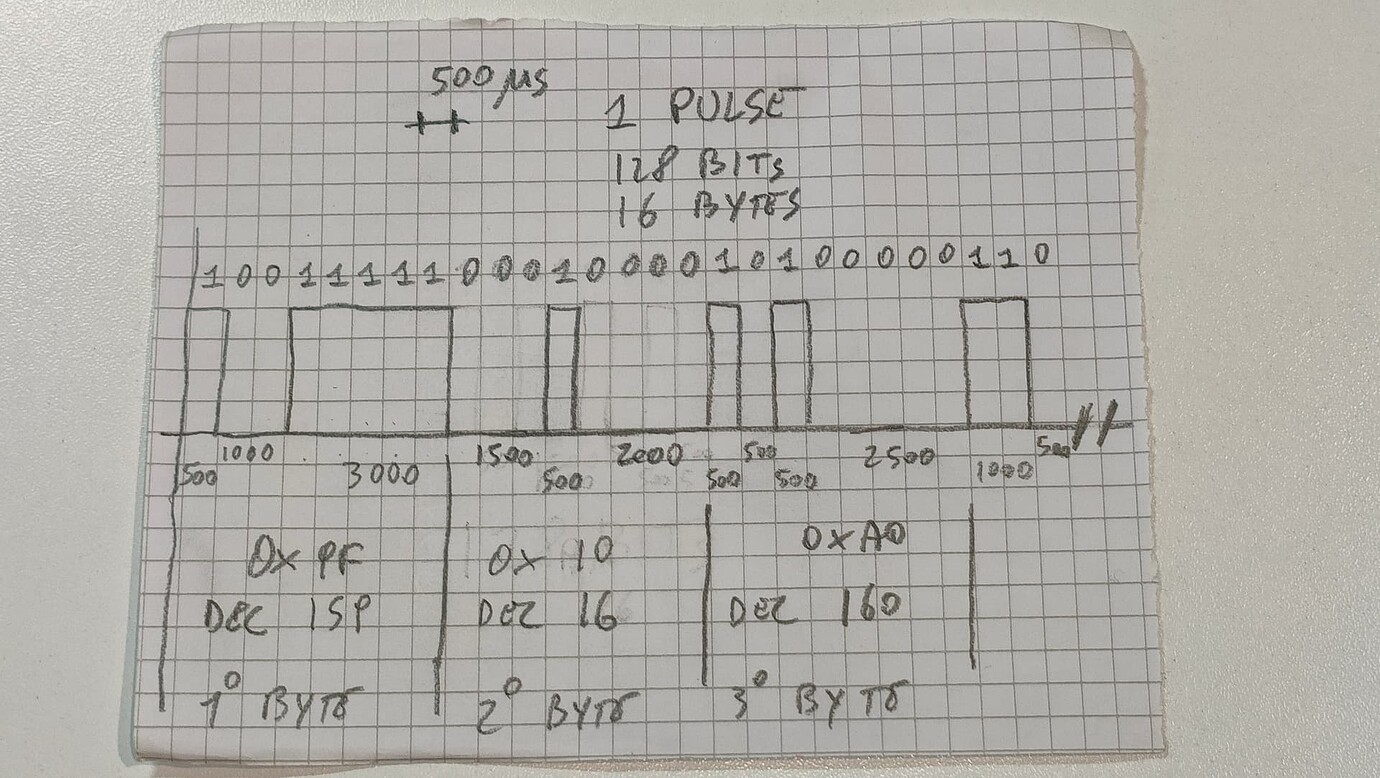 500 µs
1 PULSE
128 BITs
16 BYTES
1 0 0 1 1 1 1 1 0 0 0 1 0 0 0 0 1 0 1 0 0 0 0 0 1 1 0
500 1000 3000 1500 500 2000 500 500 500 2500 1000 500
0x 9F
DEC 159
1° BYTE
0x 10
DEC 16
2° BYTE
0xA0
DEC 160
3° BYTE